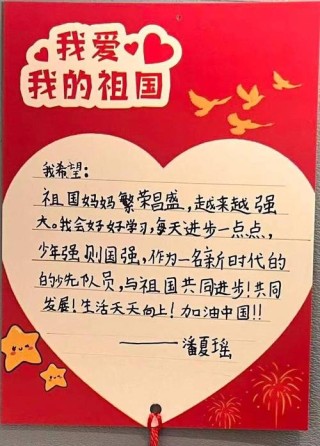 我爱
我的祖国
我希望：
祖国妈妈繁荣昌盛，越来越强
大。我会好好学习，每天进步一点点，
少年强则国强，作为一名新时代的
的少先队员，与祖国共同进步！共同
发展！生活天天向上！加油中国！！
——潘夏瑶